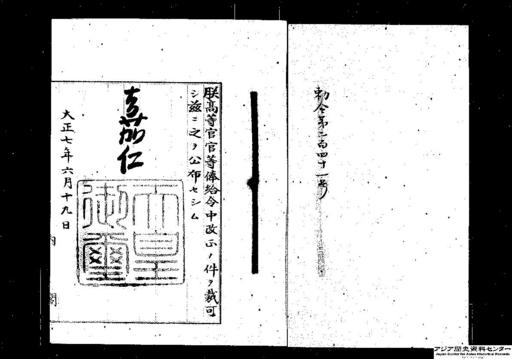 勅令第二百四十一号
朕高等官官等俸給令中改正ノ件ヲ裁可
シ茲ニ之ヲ公布セシム
嘉仁
天皇
御璽
大正七年六月十九日
内閣
アジア歴史資料センター
Japan Center for Asian Historical Records